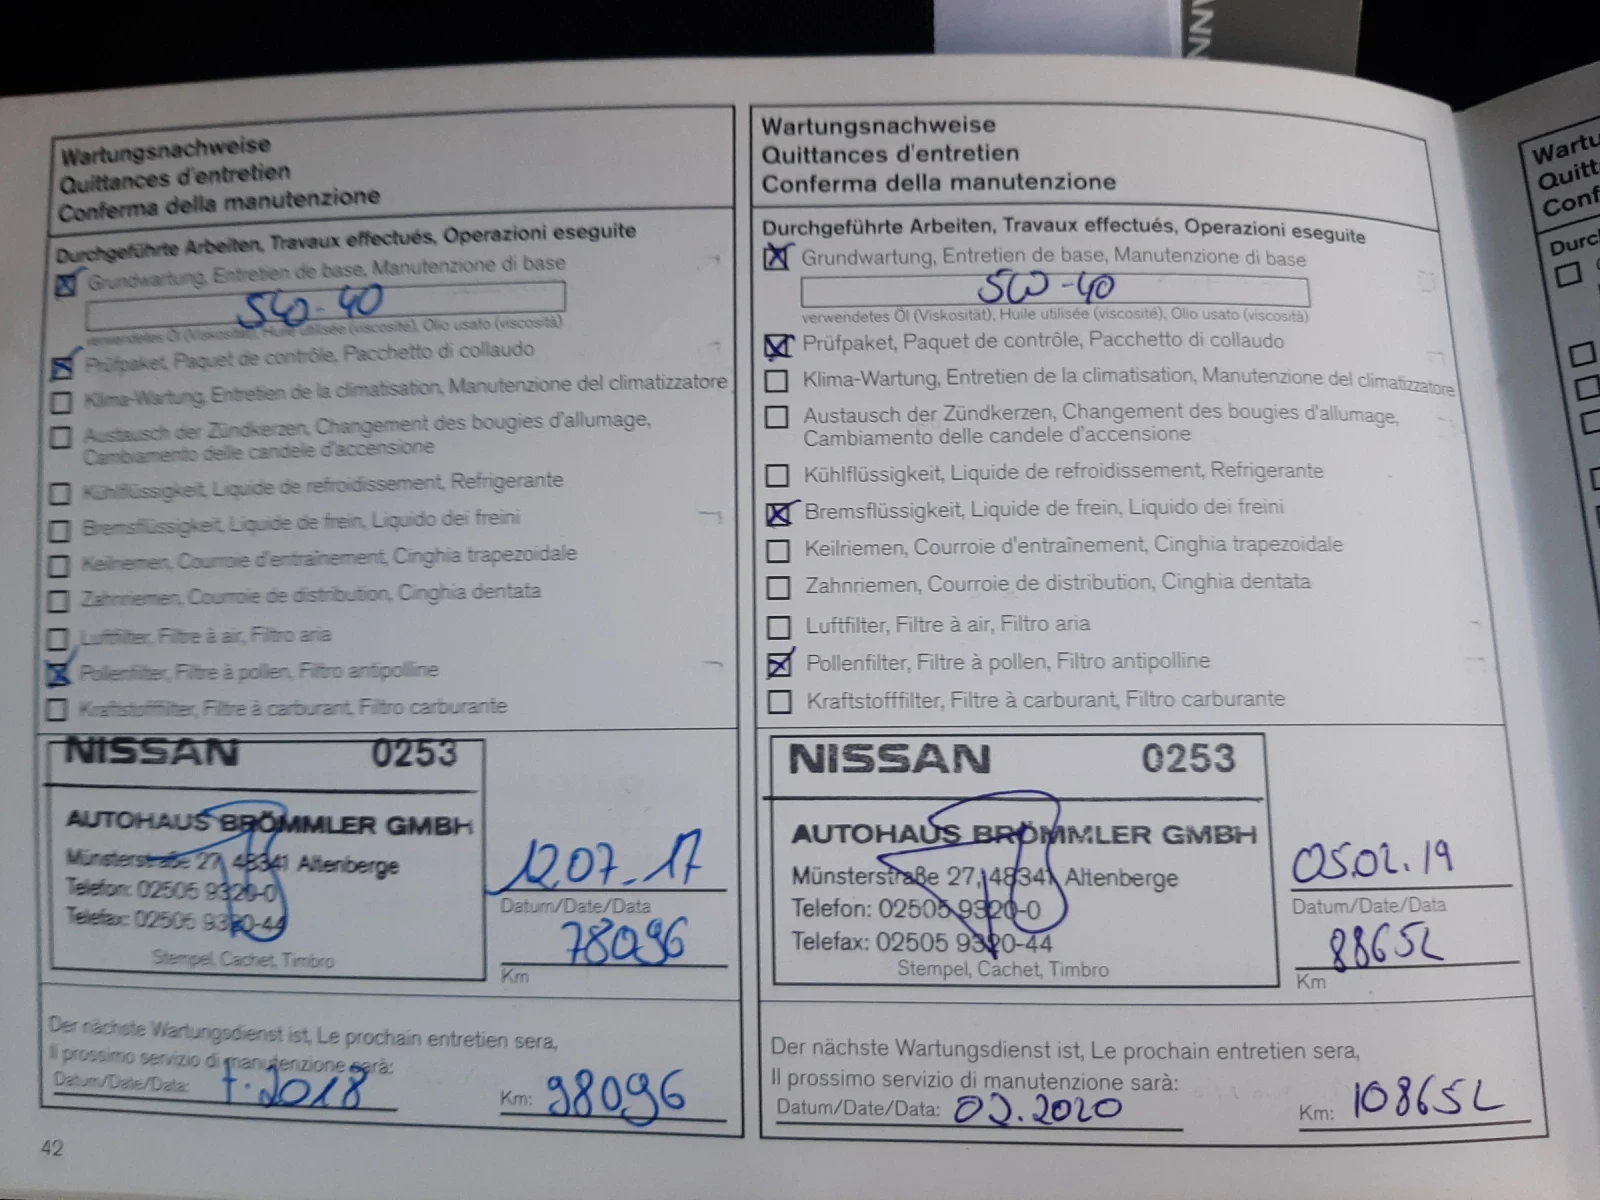 NNV
Wartungsnachweise
Quittances d'entretien
Conferma della manutenzione
Durchgeführte Arbeiten, Travaux effectués, Operazioni eseguite
Grundwartung, Entretien de base, Manutenzione di base
5W-40
verwendetes Öl (Viskosität), Huile utilisée (viscosité), Olio usato (viscosità)
Prüfpaket, Paquet de contrôle, Pacchetto di collaudo
Klima-Wartung, Entretien de la climatisation, Manutenzione del climatizzatore
Austausch der Zündkerzen, Changement des bougies d'allumage,
Cambiamento delle candele d'accensione
Kühlflüssigkeit, Liquide de refroidissement, Refrigerante
Bremsflüssigkeit, Liquide de frein, Liquido dei freini
Keilriemen, Courroie d'entraînement, Cinghia trapezoidale
Zahnriemen, Courroie de distribution, Cinghia dentata
Luftfilter, Filtre à air, Filtro aria
Pollenfilter, Filtre à pollen, Filtro antipolline
Kraftstofffilter, Filtre à carburant, Filtro carburante
NISSAN 0253
AUTOHAUS BRÖMMLER GMBH
Münsterstraße 27, 48341 Altenberge
Telefon: 02505 9320-0
Telefax: 02505 9320-44
Stempel, Cachet, Timbro
12.07.17
Datum/Date/Data
78096
Km
Der nächste Wartungsdienst ist, Le prochain entretien sera,
Il prossimo servizio di manutenzione sarà:
Datum/Date/Data: 7.2018
Km: 98096
42
Wartungsnachweise
Quittances d'entretien
Conferma della manutenzione
Durchgeführte Arbeiten, Travaux effectués, Operazioni eseguite
Grundwartung, Entretien de base, Manutenzione di base
5W-40
verwendetes Öl (Viskosität), Huile utilisée (viscosité), Olio usato (viscosità)
Prüfpaket, Paquet de contrôle, Pacchetto di collaudo
Klima-Wartung, Entretien de la climatisation, Manutenzione del climatizzatore
Austausch der Zündkerzen, Changement des bougies d'allumage,
Cambiamento delle candele d'accensione
Kühlflüssigkeit, Liquide de refroidissement, Refrigerante
Bremsflüssigkeit, Liquide de frein, Liquido dei freini
Keilriemen, Courroie d'entraînement, Cinghia trapezoidale
Zahnriemen, Courroie de distribution, Cinghia dentata
Luftfilter, Filtre à air, Filtro aria
Pollenfilter, Filtre à pollen, Filtro antipolline
Kraftstofffilter, Filtre à carburant, Filtro carburante
NISSAN 0253
AUTOHAUS BRÖMMLER GMBH
Münsterstraße 27, 48341 Altenberge
Telefon: 02505 9320-0
Telefax: 02505 9320-44
Stempel, Cachet, Timbro
05.02.19
Datum/Date/Data
88652
Km
Der nächste Wartungsdienst ist, Le prochain entretien sera,
Il prossimo servizio di manutenzione sarà:
Datum/Date/Data: 02.2020
Km: 108652
Wartu
Quitt
Conf
Durc